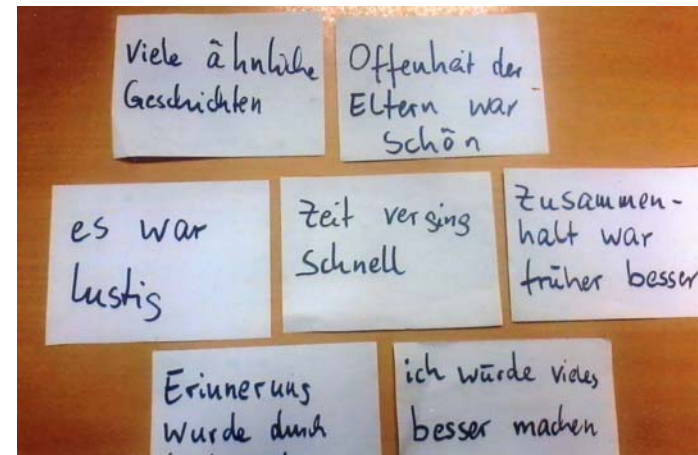 Viele ähnliche
Geschichten
Offenheit der
Eltern war
schön
es war
lustig
Zeit verging
schnell
Zusammen-
halt war
früher besser
Erinnerung
wurde durch
ich würde vieles
besser machen